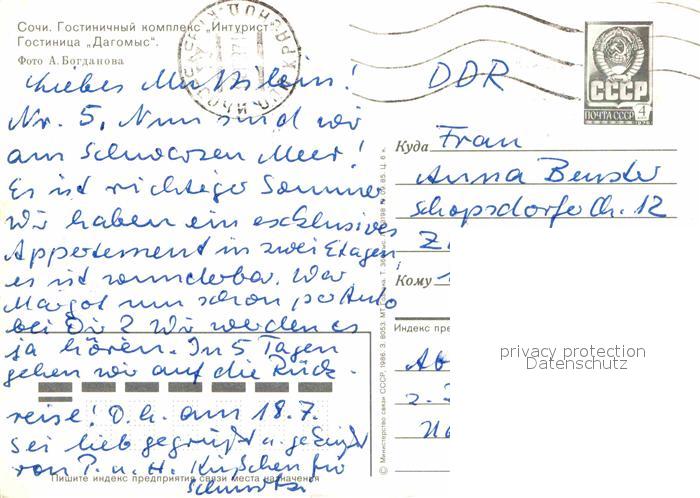 Сочи. Гостиничный комплекс „Интурист
Гостиница „Дагомыс“.
Фото А. Богданова
Liebes Muttilein!
Nr. 5. Nun sind wir
am Schwarzen Meer!
Es ist richtiger Sommer
Wir haben ein exklusives
Appartement in zwei Etagen
es ist wunderbar. War
Margot nun schon per Auto
bei Dir? Wir werden es
ja hören. In 5 Tagen
gehen wir auf die Rück-
reise! D. h. am 18.7.
Sei lieb gegrüßt u. geküßt
von P. u. H. Küßchen für
Пишите индекс предприятия связи места назначения
© Министерство связи СССР, 1986. З. 8053. МТ
DDR
СССР
ПОЧТА СССР 4
Куда Frau
Anna Benster
Schopsdorfer Ch. 12
Z
Кому
Индекс пре
privacy protection
Datenschutz